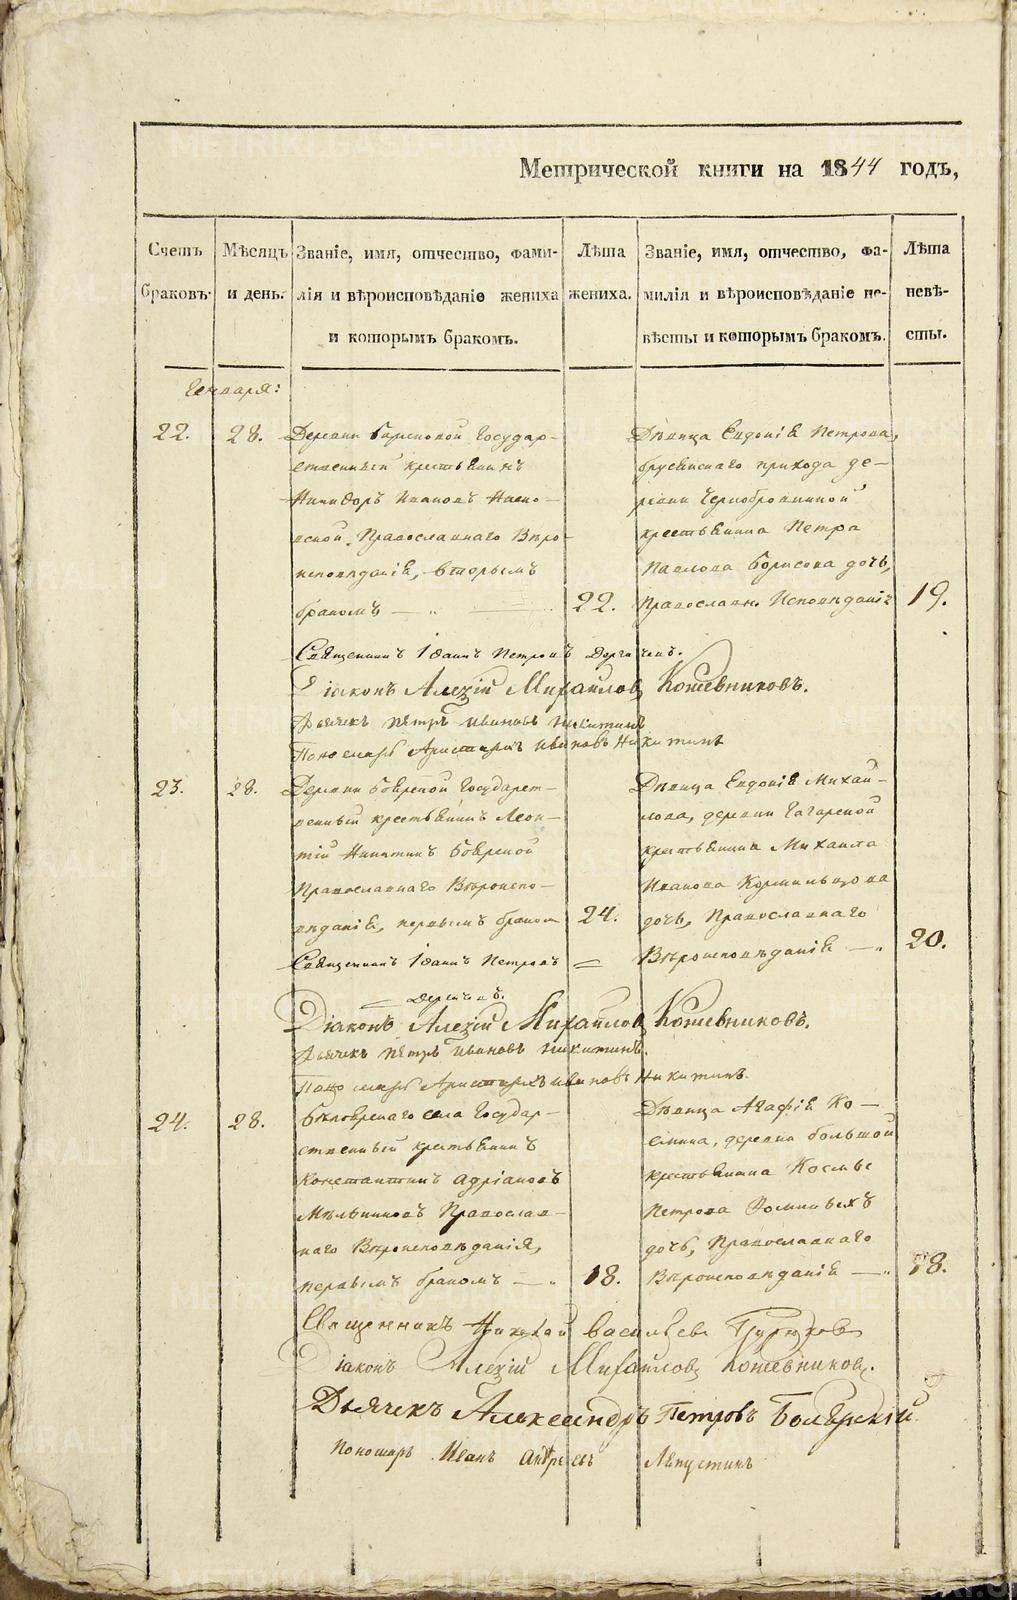 Метрической книги на 1844 годъ,
Счетъ браковъ.
Мѣсяцъ и день.
Званіе, имя, отчество, фами-
лія и вѣроисповѣданіе жениха
и которымъ бракомъ.
Лѣта жениха.
Званіе, имя, отчество, фа-
милія и вѣроисповѣданіе не-
вѣсты и которымъ бракомъ.
Лѣта невѣ-
сты.
Генваря:
22.
28.
Деревни Государ-
ственный крестьянинъ
Никифоръ Ивановъ
Православнаго Вѣро-
исповѣданія, вторымъ
бракомъ
22.
Дѣвица Евдокія Петрова,
прихода де-
ревни
крестьянина Петра
Павлова Борисова дочь,
Православн. Исповѣданія
19.
Священникъ Іоаннъ Петровъ
Діаконъ Алексій Михайловъ Кожевниковъ.
Дьячекъ Петръ Ивановъ Никитинъ
Пономарь Аристархъ Ивановъ Никитинъ
23.
28.
Деревни Государст-
венный крестьянинъ Леон-
тій Никитинъ
Православнаго Вѣроиспо-
вѣданія, первымъ бракомъ
24.
Дѣвица Евдокія Михай-
лова, деревни Гагарской
крестьянина Михаила
Иванова Кормильцова
дочь, Православнаго
Вѣроисповѣданія
20.
Священникъ Іоаннъ Петровъ
Діаконъ Алексій Михайловъ Кожевниковъ.
Дьячекъ Петръ Ивановъ Никитинъ.
Пономарь Аристархъ Ивановъ Никитинъ.
24.
28.
села Государ-
ственный крестьянинъ
Константинъ Адріановъ
Мѣльниковъ Православ-
наго Вѣроисповѣданія,
первымъ бракомъ
18.
Дѣвица Агафія Ко-
смина, деревни Большой
крестьянина Космы
Петрова
дочь, Православнаго
Вѣроисповѣданія
18.
Священникъ Николай Васильевъ
Діаконъ Алексій Михайловъ Кожевниковъ.
Дьячекъ Александръ Петровъ Боярскій.
Пономарь Иванъ Андреевъ Лепустинъ